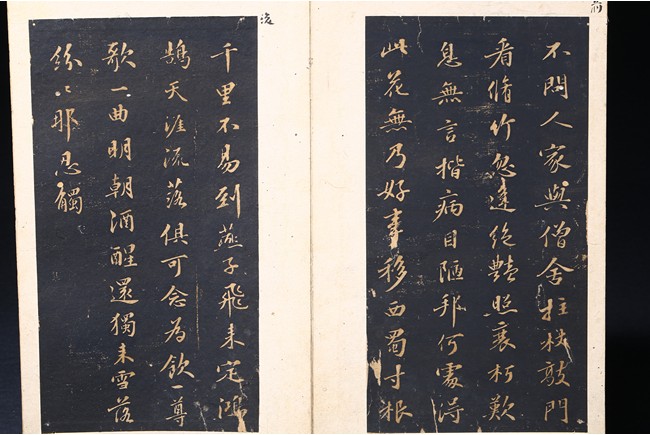 前
不問人家與僧舍拄杖敲門
看脩竹忽逢絕艷照衰朽歎
息無言揩病目陋邦何處得
此花無乃好事移西蜀寸根
後
千里不易到燕子飛来定鴻
鵠天涯流落俱可念為飲一尊
歌一曲明朝酒醒還獨来雪落
紛〻那忍觸